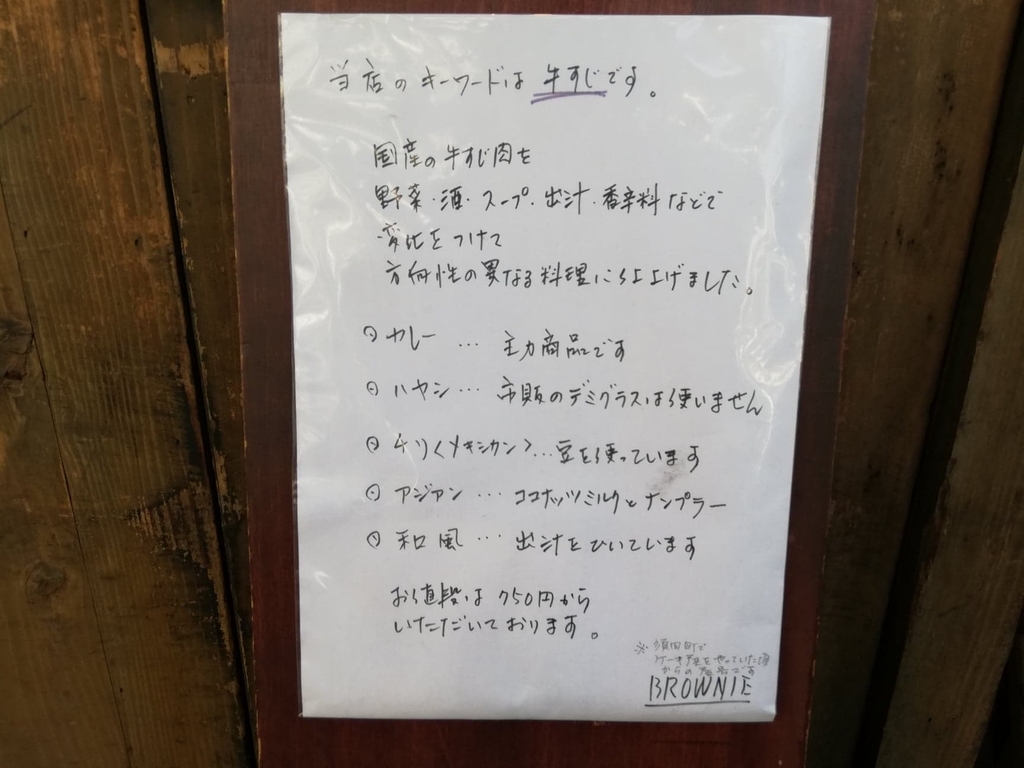 当店のキーワードは 牛すじです。
国産の牛すじ肉を
野菜・酒・スープ・出汁・香辛料などで
変化をつけて
方向性の異なる料理に仕上げました。
○ カレー … 主力商品です
○ ハヤシ … 市販のデミグラスは使いません
○ チリ<メキシカン> … 豆を使っています
○ アジアン … ココナッツミルクとナンプラー
○ 和風 … 出汁をひいています
お値段は 750円から
いただいております。
※ 須田町で
ケーキ屋をやっていた頃
からの屋号です
BROWNIE